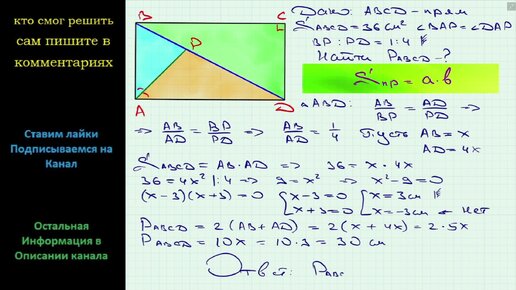 кто смог решить
сам пишите в
комментариях
Ставим лайки
Подписываемся на
Канал
Остальная
Информация в
Описании канала
B
C
P
A
D
Дано: ABCD - прям
S ABCD = 36 см² ∠BAP = ∠DAP
BP : PD = 1 : 4
Найти P ABCD - ?
S пр = a · b
△ABD: AB/BP = AD/PD ⇒
⇒ AB/AD = BP/PD ⇒ AB/AD = 1/4 Пусть AB = x
AD = 4x
S ABCD = AB · AD ⇒ 36 = x · 4x
36 = 4x² | : 4 ⇒ 9 = x² ⇒ x² - 9 = 0
(x - 3)(x + 3) = 0 { x - 3 = 0 { x = 3 см
x + 3 = 0 x = -3 см - нет
P ABCD = 2(AB + AD) = 2(x + 4x) = 2 · 5x
P ABCD = 10x = 10 · 3 = 30 см
Ответ: P ABC